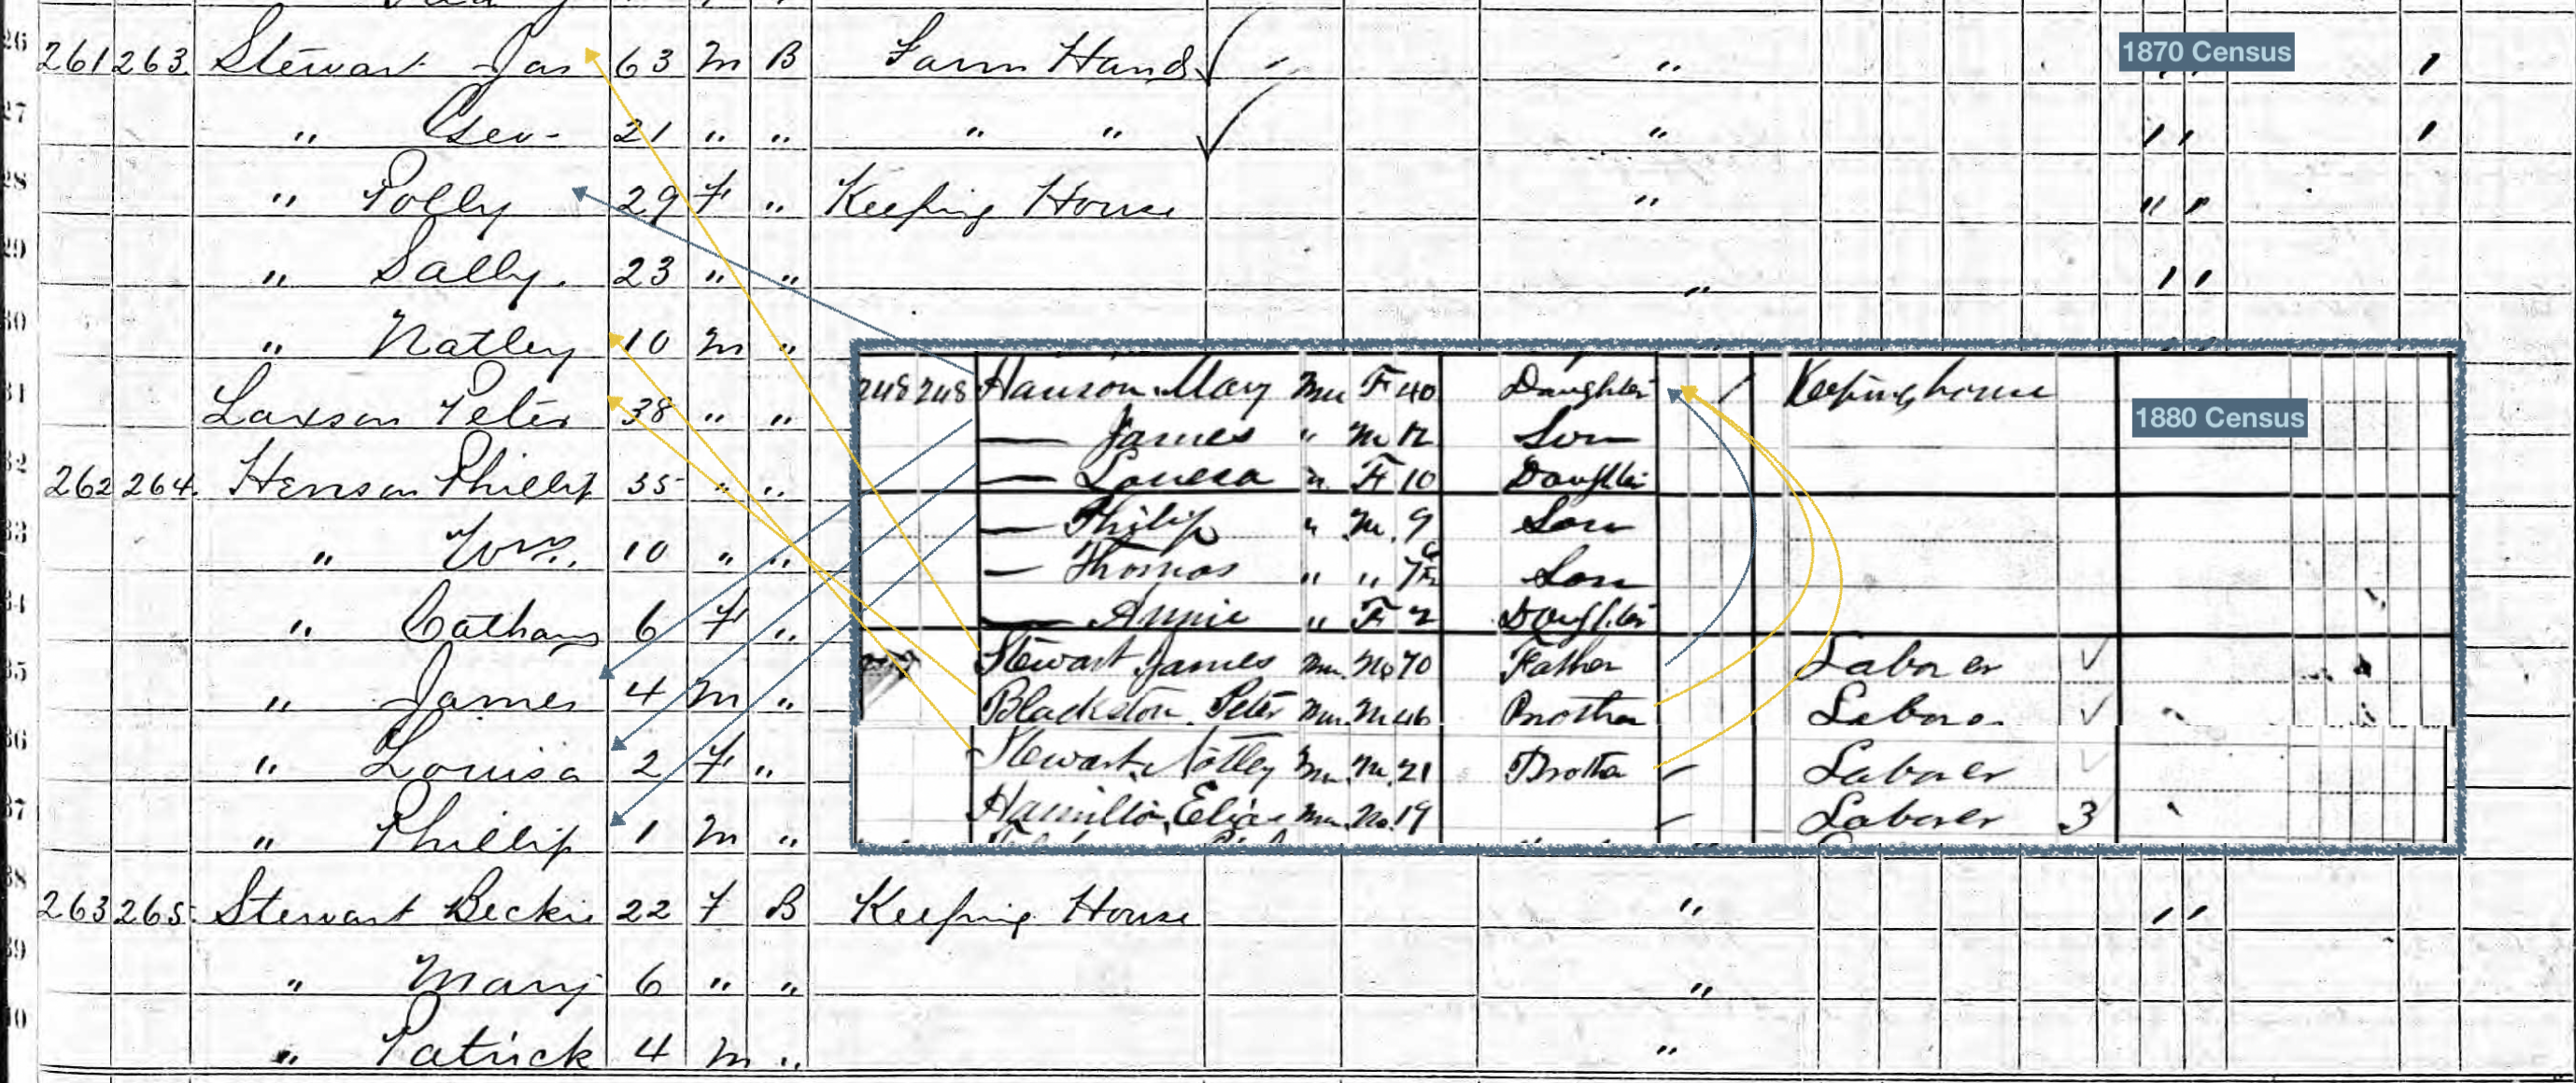 26 261 263. Stewart Jas 63 M B Farm Hand " 1870 Census " " 1
27 " Geo- 21 " " " " " " " 1
28 " Polly 29 F " Keeping House " " "
29 " Sally. 23 " " " " "
30 " Natley 10 M "
31 Laxson Peter 38 " "
32 262 264. Henson Phillip 35 " "
33 " Wm. 10 " "
34 " Cathany 6 F "
35 " James 4 M "
36 " Louisa 2 F "
37 " Phillip 1 M "
38 263 265. Stewart Beckie 22 F B Keeping House " " "
39 " Mary 6 " " "
40 " Patrick 4 M " "
248 248 Hanson. Mary Mu F 40 Daughter / Keeping house
1880 Census
— James " M 12 Son
— Louesa " F 10 Daughter
— Philip " M. 9 Son
— Thomas " " 7 Son
— Annie " F 2 Daughter
Stewart James Mu. M 70 Father Laborer
Blackston. Peter Mu. M 46 Brother Laborer
Stewart, Nottey Mu. M. 21 Brother Laborer
Hamilton, Elias Mu. M. 19 Laborer 3